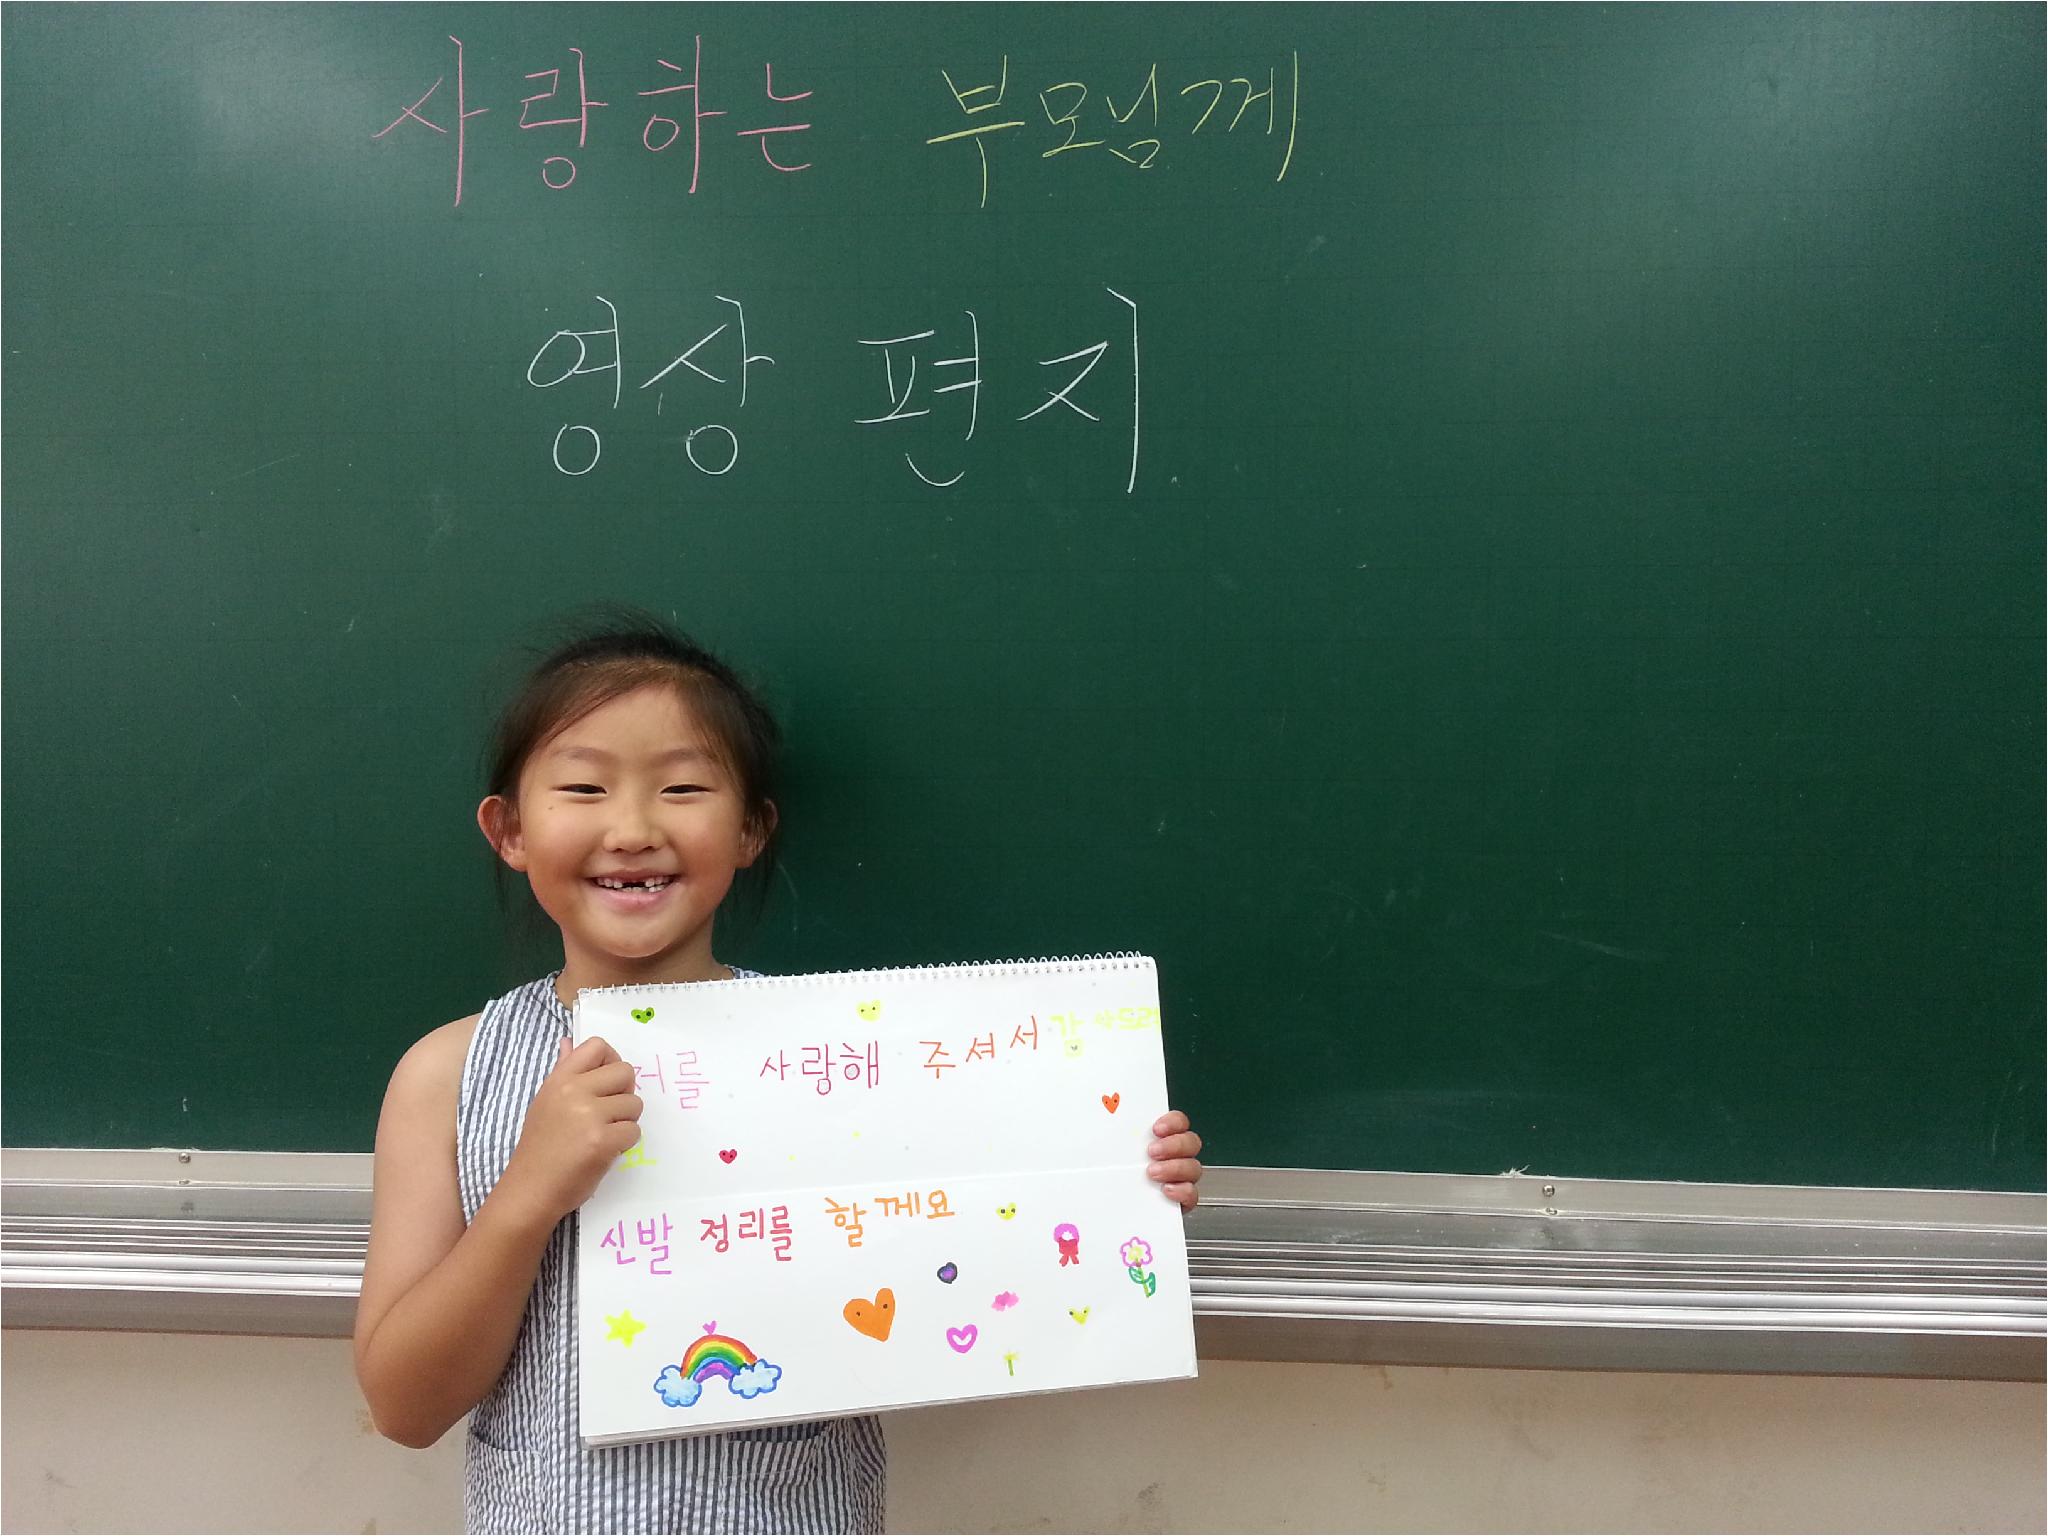 사랑하는 부모님께
영상 편지
저를 사랑해 주셔서 감사드려
요
신발 정리를 할께요